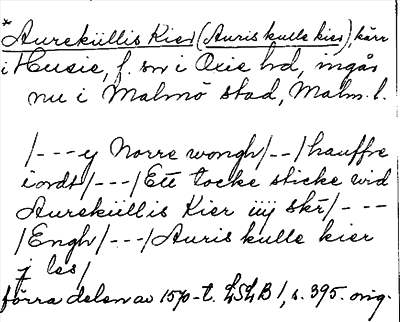 *Aureküllis Kier (Auris kulle kier), kärr
i Husie, f. sn i Oxie hd, ingår
nu i Malmö stad, Malm. l.
/---y Norre wongh/--/hauffre
iordt/---/Ett tocke sticke wid
Aureküllis Kier iiij skr/---
/Engh/---/Auris kulle kier
j les/
förra delen av 1570-t. LSLB 1, s. 395. orig.